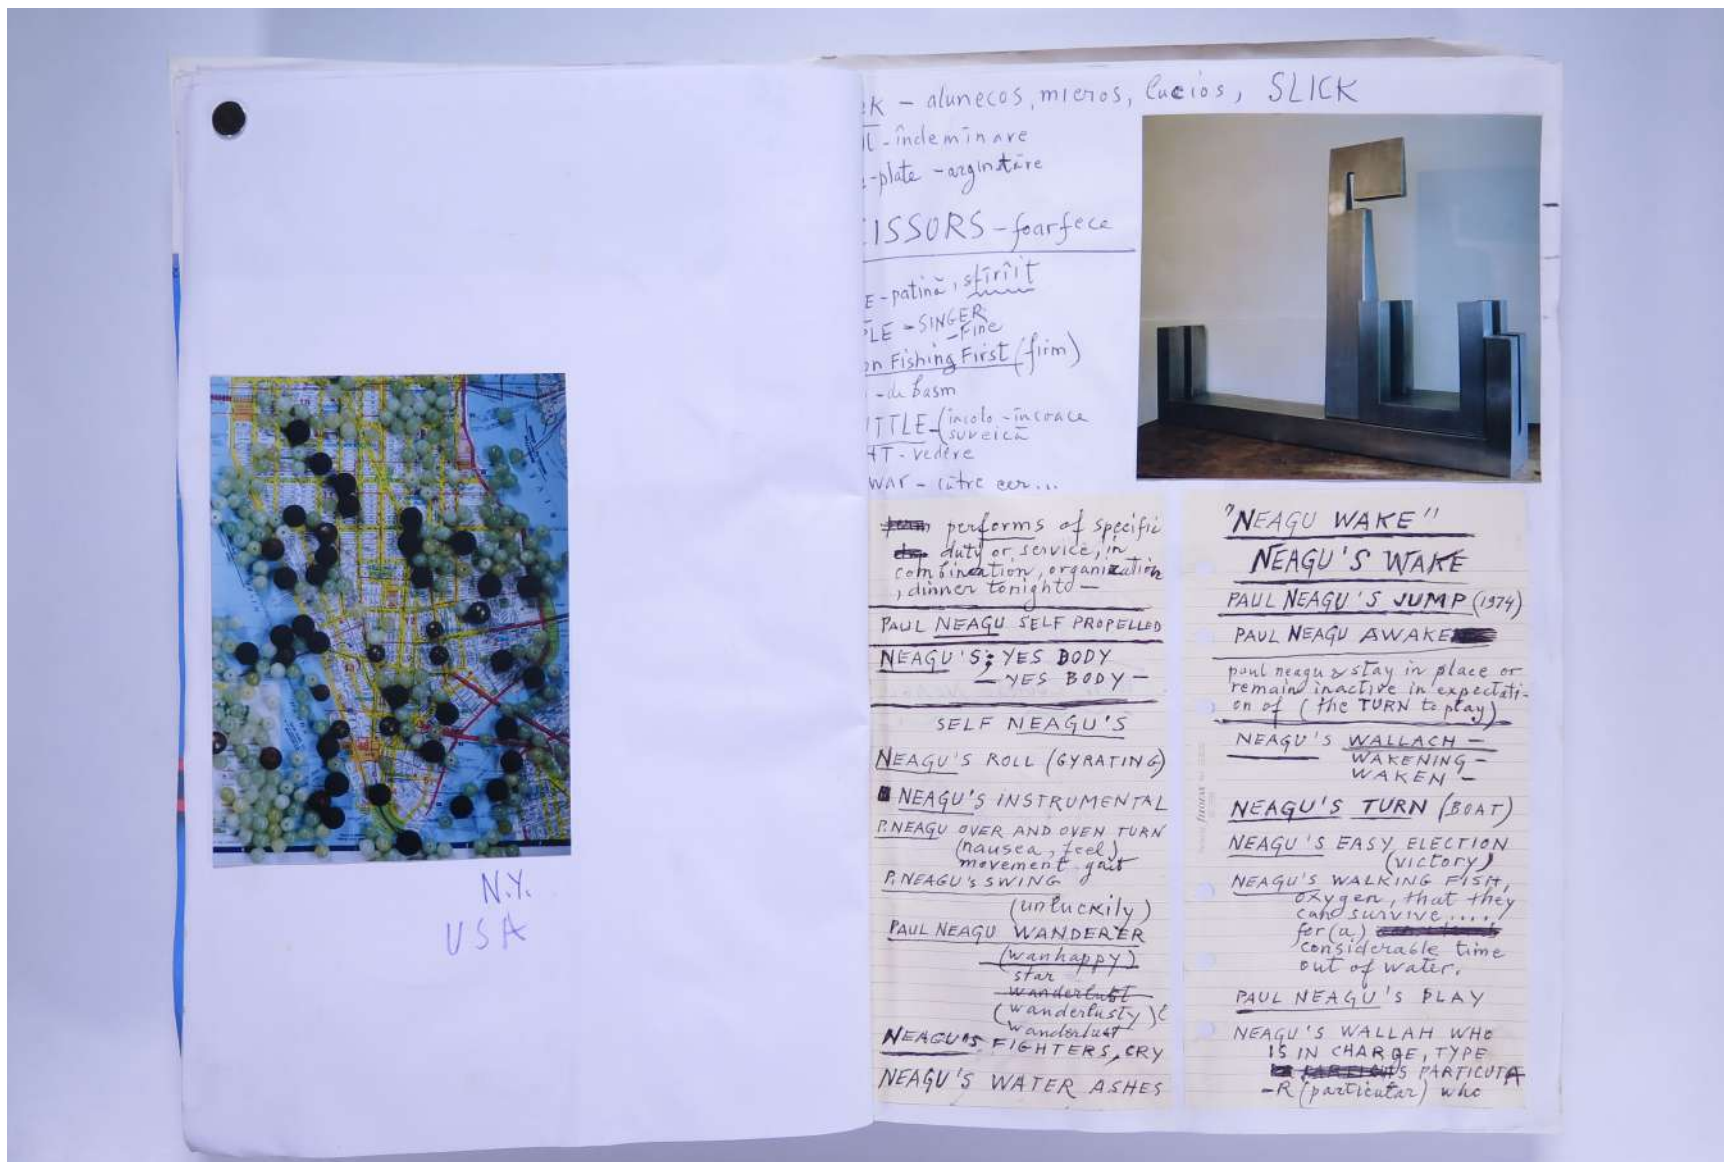 N.Y.
USA
K – alunecos, micros, lucios, SLICK
- îndemînare
-plate - argintăre
ISSORS – foarfece
E - patină, sfîrîit
PLE - SINGER
- Fine
on Fishing First (firm)
- de basm
TTLE - (incolo - incoace
suveică
HT - vedere
WAR - către cer...
performs of specific
duty or service, in
combination, organization
, dinner tonighto —
PAUL NEAGU SELF PROPELLED
NEAGU'S; YES BODY
— YES BODY —
SELF NEAGU'S
NEAGU'S ROLL (GYRATING)
NEAGU'S INSTRUMENTAL
P.NEAGU OVER AND OVEN TURN
(nausea, feel)
movement gait
P. NEAGU'S SWING
(unluckily)
PAUL NEAGU WANDERER
(wanhappy)
star
wanderlust
(wanderlusty)
wanderlust
NEAGU'S FIGHTERS, CRY
NEAGU'S WATER ASHES
"NEAGU WAKE"
NEAGU'S WAKE
PAUL NEAGU'S JUMP (1974)
PAUL NEAGU AWAKE
paul neagu & stay in place or
remain inactive in expectati-
on of (the TURN to play)
NEAGU'S WALLACH —
WAKENING —
WAKEN —
NEAGU'S TURN (BOAT)
NEAGU'S EASY ELECTION
(victory)
NEAGU'S WALKING FISH,
oxygen, that they
can survive.....
for (a)
considerable time
out of water.
PAUL NEAGU'S PLAY
NEAGU'S WALLAH WHO
IS IN CHARGE, TYPE
PARTICULA
-R (particular) who